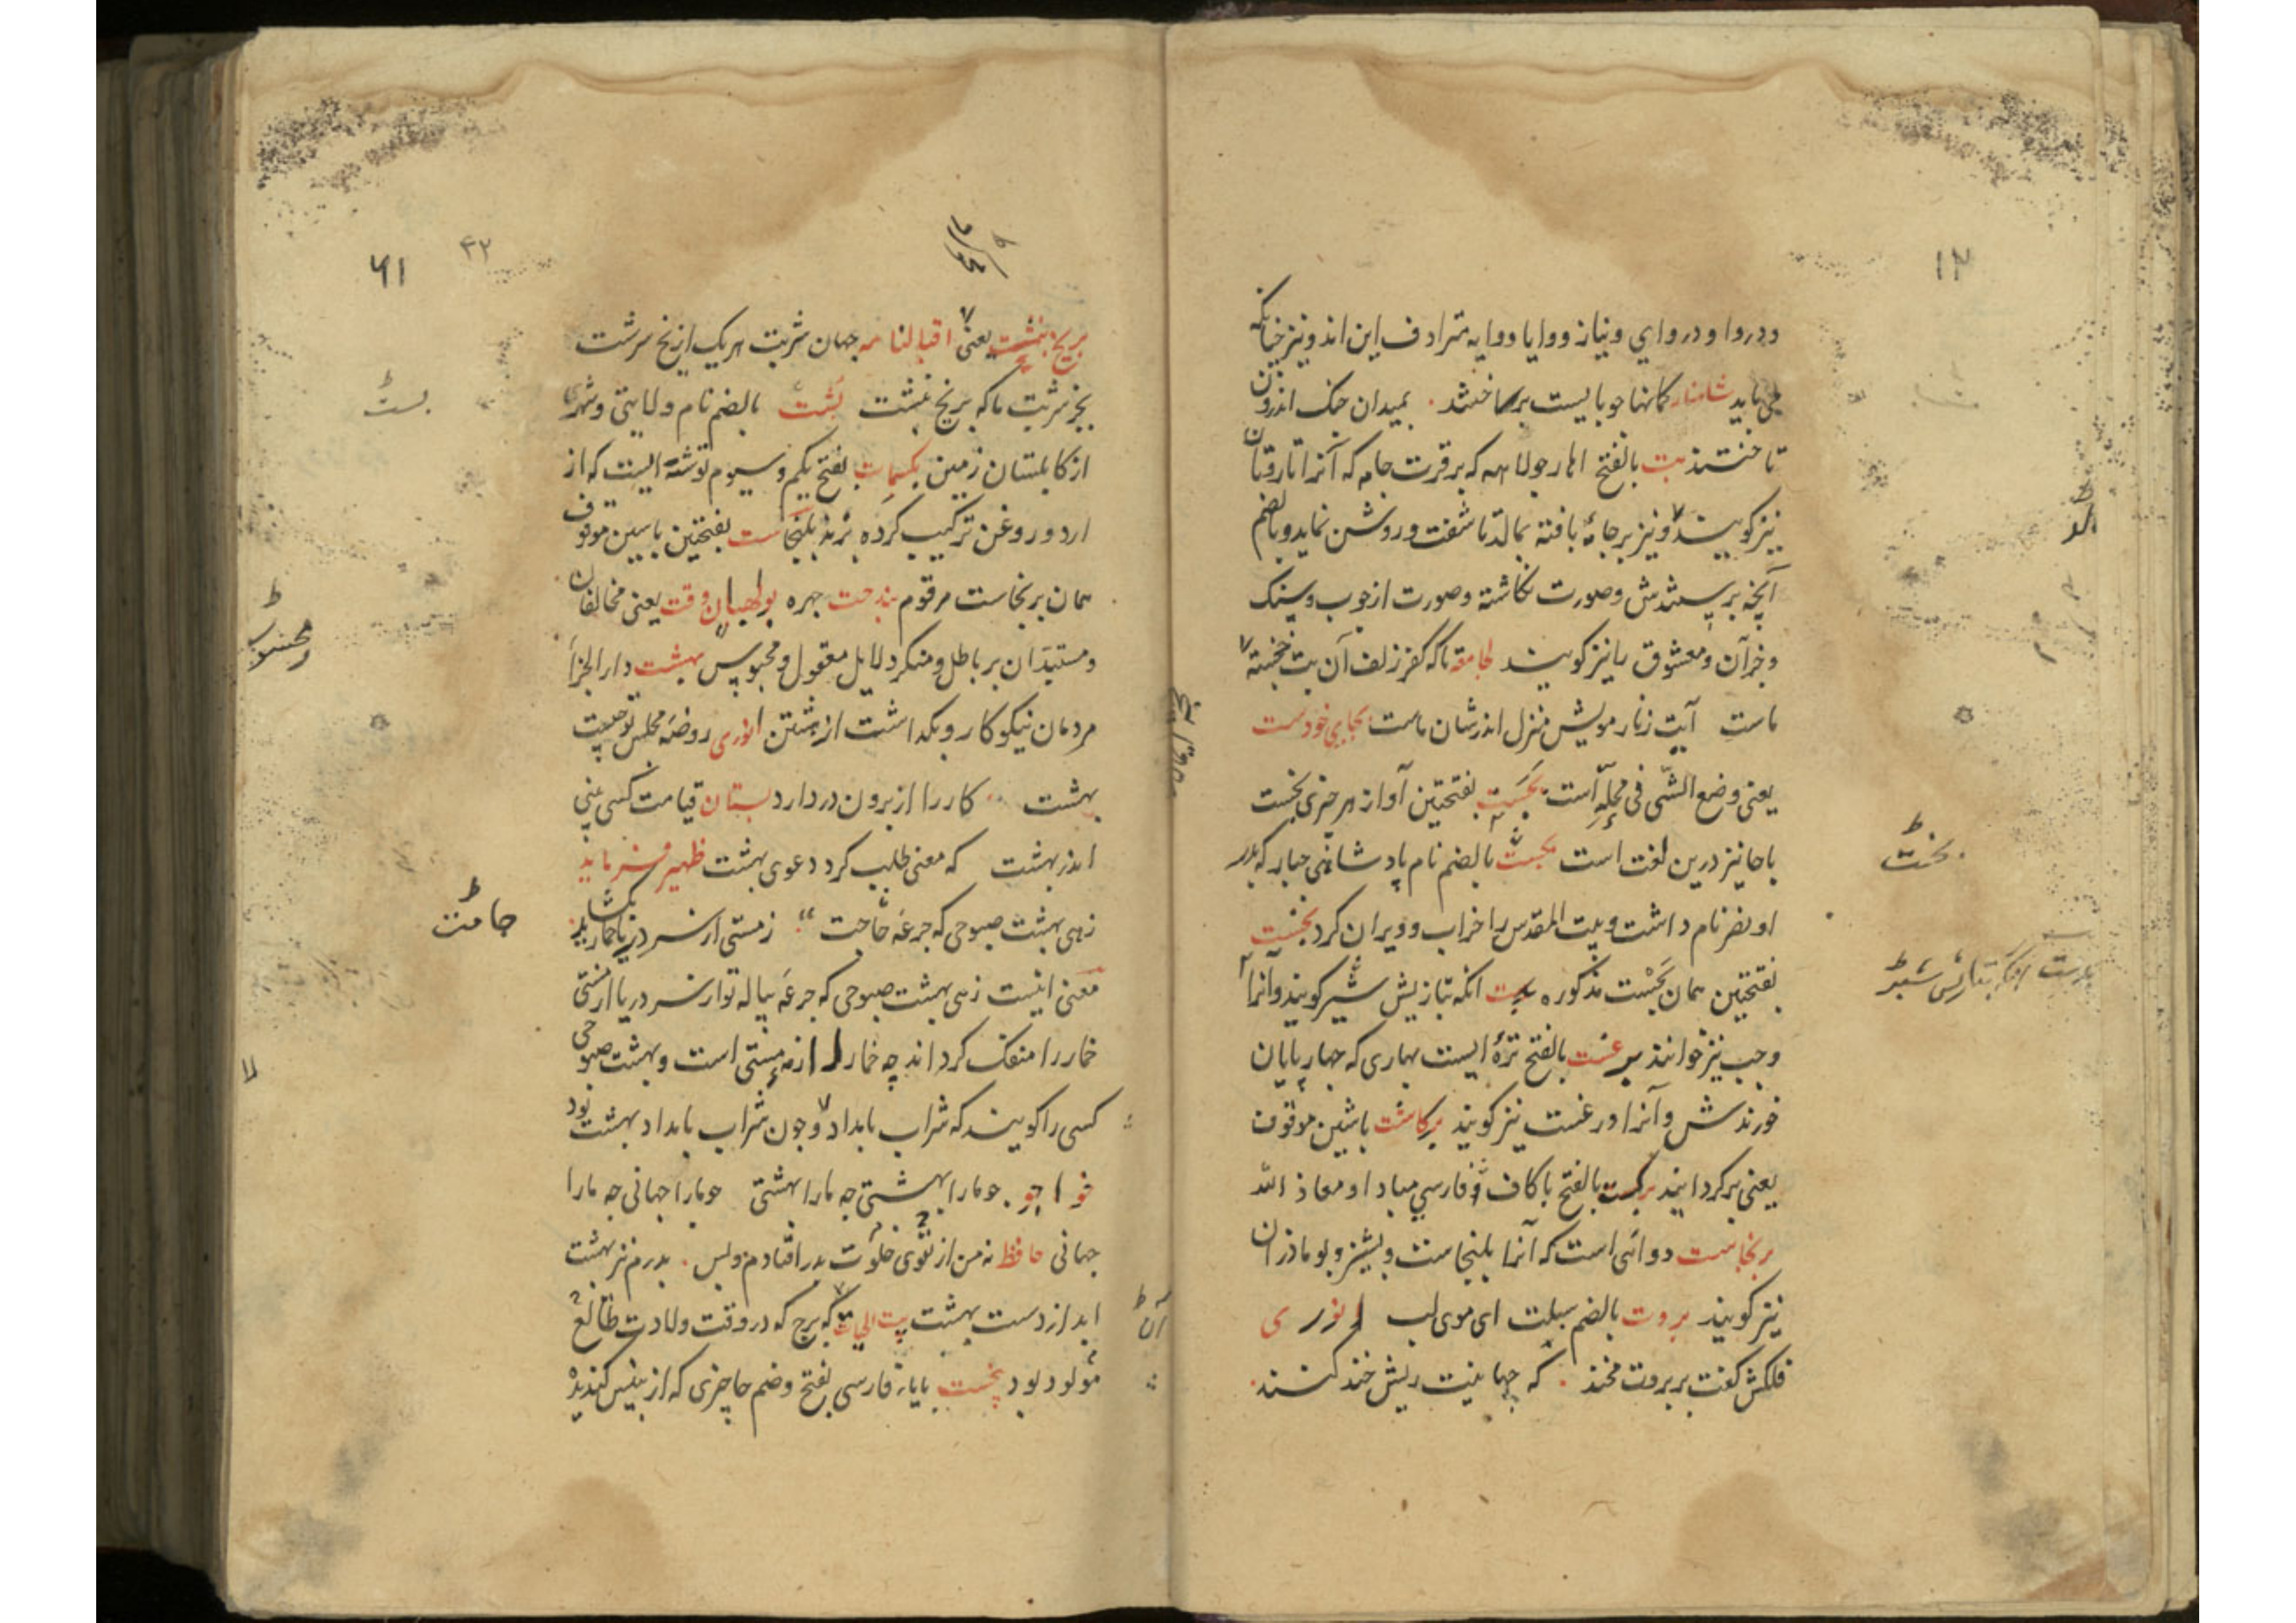 ۱۲
ودروا و دروای و نیاز و وایا و وایه مترادف این اند و نیز چنانکه
می باید شاهنامه کمانها چو بایست برساختند بمیدان جنک اندرون
تاختند بت بالفتح اهار جولاهه که برقرت جامه که آنرا تاروتان
نیز کویند و نیز بر جامهٔ بافته بمالد تا شفت و روشن نماید و بالضم
آنچه پرستندش و صورت نکاشته و صورت از چوب و سنک
و جز آن و معشوق را نیز کویند لجامعه تا که کفر زلف آن بت خجسته
ماست آیت زنار مویش منزل اندر شان ماست بجای خودست
یعنی وضع الشی فی محله است بخست بفتحتین آواز هر چیزی بخست
با خا نیز درین لغت است بخست بالضم نام پادشاهی جبار که پدر
او نصر نام داشت و بیت المقدس را خراب و ویران کرد بخست
بفتحتین همان بخست مذکوره انکه بتازیش شبر کویند و آنرا
وجب نیز خوانند برغست بالفتح ترهٔ ایست بهاری که چهارپایان
خورندش و آنرا ورغست نیز کویند برکاشت باشین موقوف
یعنی برکردانید برکست بالفتح با کاف فارسی مبادا و معاذ الله
برنجاست دوائی است که آنرا بلنجاست و بومادران
نیز کویند بروت بالضم سبلت ای موی لب انوری
فلکش کفت بر بروت مخند که جهانیت ریش خند کنند
بخت
۶۱
۴۲
بریخ بنشت یعنی اقبالنامه جهان شربت هر یک از یخ سرشت
بجز شربت ما که بر یخ نبشت بست بالضم نام ولایتی و شهری
از کابلستان زمین بکسمات بفتح یکم و سیوم توشه ایست که از
ارد و روغن ترکیب کرده برند بلنجاست بفتحتین باسین موقوف
همان برنجاست مرقوم بولهبان وقت یعنی مخالفان
و مستبدان بر باطل و منکر دلایل معقول و محبوس بهشت دار الجزا
مردمان نیکوکار و بکذاشت از هشتن انوری روضه مجلس تو چیت
بهشت کار را از برون در دارد بستان قیامت کسی نبی
اندر بهشت که معنی طلب کرد دعوی بهشت ظهیر فرماید
زهی بهشت صبوحی که جرعه جامت ز مستی از سر دریا خمار بکشاید
معنی اینست زهی بهشت صبوحی که جرعه پیاله تو از سر دریا از مستی
خمار را منفک کرداند چه خمار لازمه مستی است و بهشت صبوحی
کسی را کویند که شراب بامداد و چون شراب بامداد بهشت بود
خواجو چو ما را بهشتی چه ما را بهشتی چو ما را جهانی چه ما را
جهانی حافظ نه من از تقوی خلوت بدر افتادم و بس پدرم نیز بهشت
ابد از دست بهشت بیت الحیات که برج که در وقت ولادت طالع
مولود بود پخست با پاء فارسی بفتح و ضم خا چیزی که از
بست
جامت